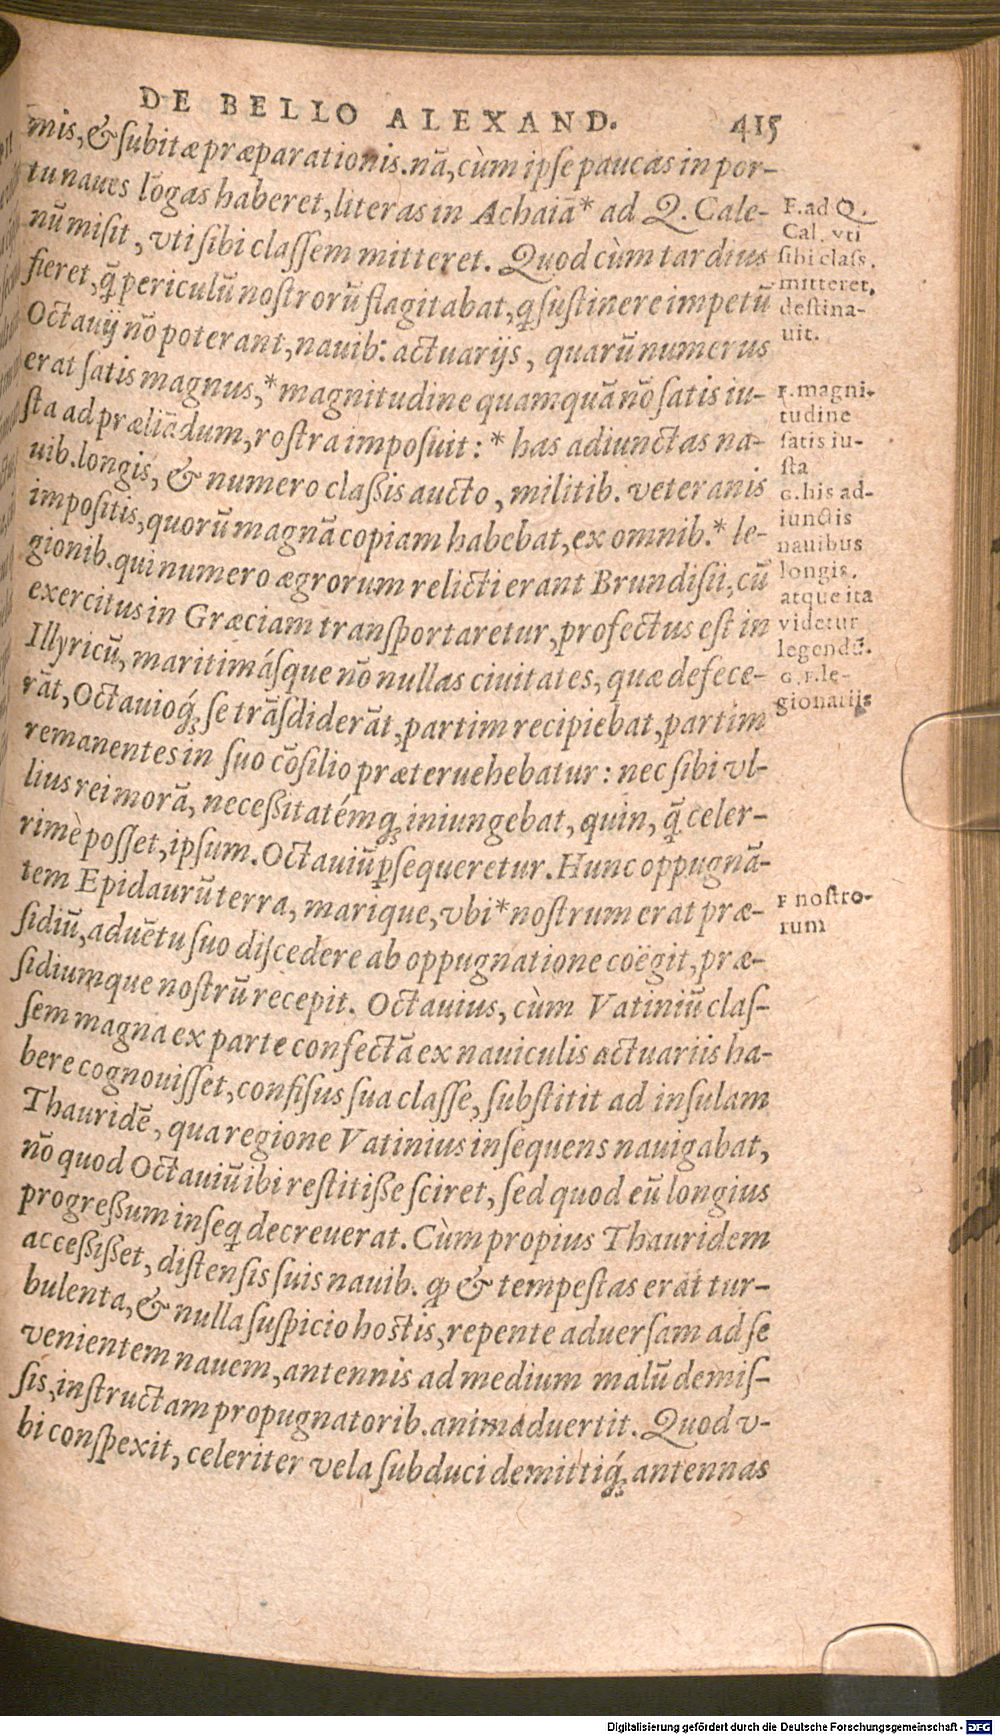 DE BELLO ALEXAND. 415
mis, & ſubitæ præparationis. nā, cùm ipſe paucas in por-
tu naues lōgas haberet, literas in Achaiā* ad Q. Cale-
nū miſit, vti ſibi claſſem mitteret. Quod cùm tardius
fieret, q̃ periculū noſtrorū flagitabat, q̃ ſuſtinere impetū
Octauij nō poterant, nauib. actuarijs, quarū numerus
erat ſatis magnus,* magnitudine quamquā nō ſatis iu-
ſta ad præliādum, roſtra impoſuit: * has adiunctas na-
uib. longis, & numero claßis aucto, militib. veteranis
impoſitis, quorū magnā copiam habebat, ex omnib.* le-
gionib. qui numero ægrorum relicti erant Brundiſii, cū
exercitus in Græciam tranſportaretur, profectus eſt in
Illyricū, maritimáſque nō nullas ciuitates, quæ defece-
rāt, Octauioq́; ſe trāſdiderāt, partim recipiebat, partim
remanentes in ſuo cōſilio præteruehebatur: nec ſibi vl-
lius rei morā, neceßitatémq; iniungebat, quin, q̃ celer-
rimè poſſet, ipſum. Octauiū ꝑſequeretur. Hunc oppugnā-
tem Epidaurū terra, marique, vbi* noſtrum erat præ-
ſidiū, aduētu ſuo diſcedere ab oppugnatione coëgit, præ-
ſidiumque noſtrū recepit. Octauius, cùm Vatiniū claſ-
ſem magna ex parte confectā ex nauiculis actuariis ha-
bere cognouiſſet, confiſus ſua claſſe, ſubſtitit ad inſulam
Thauridē, qua regione Vatinius inſequens nauigabat,
nō quod Octauiū ibi reſtitiße ſciret, ſed quod eū longius
progreßum inſeq̃ decreuerat. Cùm propius Thauridem
acceßißet, diſtenſis ſuis nauib. ꝙ & tempeſtas erat tur-
bulenta, & nulla ſuſpicio hoſtis, repente aduerſam ad ſe
venientem nauem, antennis ad medium malū demiſ-
ſis, inſtructam propugnatorib. animaduertit. Quod v-
bi conſpexit, celeriter vela ſubduci demittiq́; antennas
F. ad Q.
Cal. vti
ſibi claſs.
mitteret,
deſtina-
uit.
F. magni-
tudine
ſatis iu-
ſta
G. his ad-
iunctis
nauibus
longis.
atque ita
videtur
legendū.
G. F. le-
gionariis
F noſtro-
rum
Digitalisierung gefördert durch die Deutsche Forschungsgemeinschaft - DFG